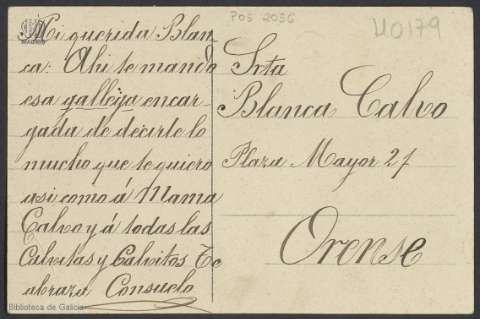 POS 2036
U0179
MADRID
Mi querida Blan
ca: Ahi te mando
esa galleija encar-
gada de decirte lo
mucho que te quiero
asi como á Mama
Calvo y á todas las
Calvitas y Calvitos Te
abraza Consuelo
Srta
Blanca Calvo
Plaza Mayor 27
Orense
Biblioteca de Galicia